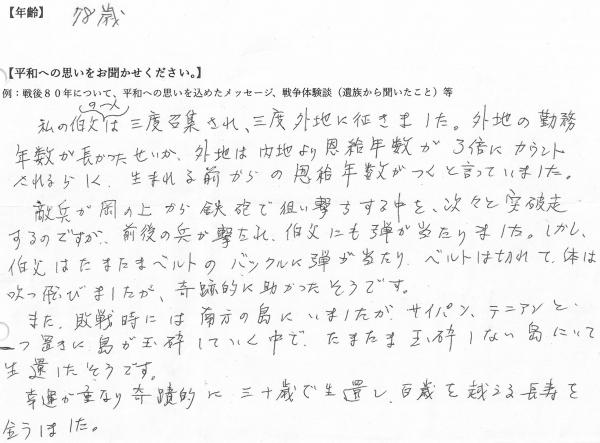 【年齢】 78歳
【平和への思いをお聞かせください。】
例：戦後８０年について、平和への思いを込めたメッセージ、戦争体験談（遺族から聞いたこと）等
の一人
私の伯父は三度召集され、三度外地に征きました。外地の勤務
年数が長かったせいか、外地は内地より恩給年数が3倍にカウント
されるらしく、生まれる前からの恩給年数がつくと言っていました。
敵兵が岡の上から鉄砲で狙い撃ちする中を、次々と突破走
するのですが、前後の兵が撃たれ、伯父にも弾が当たりました。しかし、
伯父はたまたまベルトのバックルに弾が当たり、ベルトは切れて、体は
吹っ飛びましたが、奇跡的に助かったそうです。
また、敗戦時には南方の島にいましたが、サイパン、テニアンと、
一つ置きに島が玉砕していく中で、たまたま玉砕しない島にいて
生還したそうです。
幸運が重なり奇蹟的に三十歳で生還し、百歳を越える長寿を
全うしました。